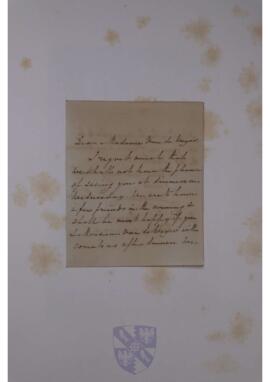 Dear Madame Van de Weyer
I regret much that
we shall not have the pleasure
of seeing you at dinner on
Wednesday. We are to have
a few friends in the evening &
shall be most happy if you
& Monsieur Van de Weyer will
come to us after dinner